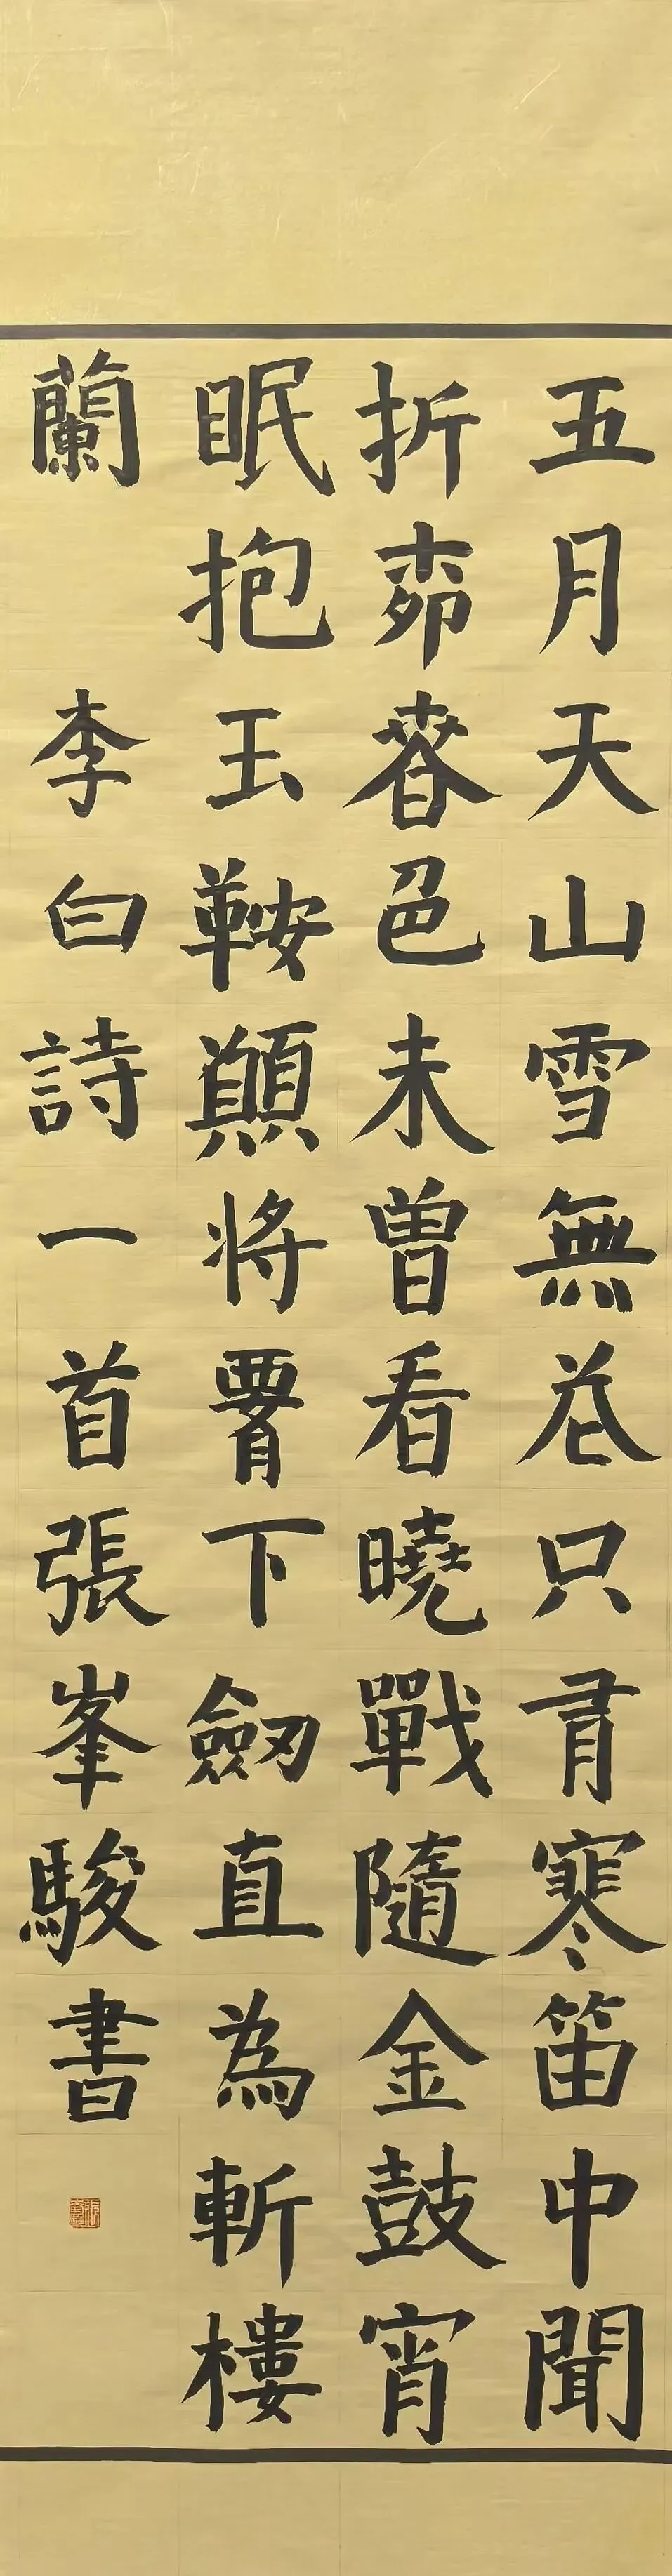 五月天山雪無花只有寒笛中聞
折柳春色未曾看曉戰隨金鼓宵
眠抱玉鞍願将腰下劒直為斬樓
蘭 李白詩一首張峯駿書